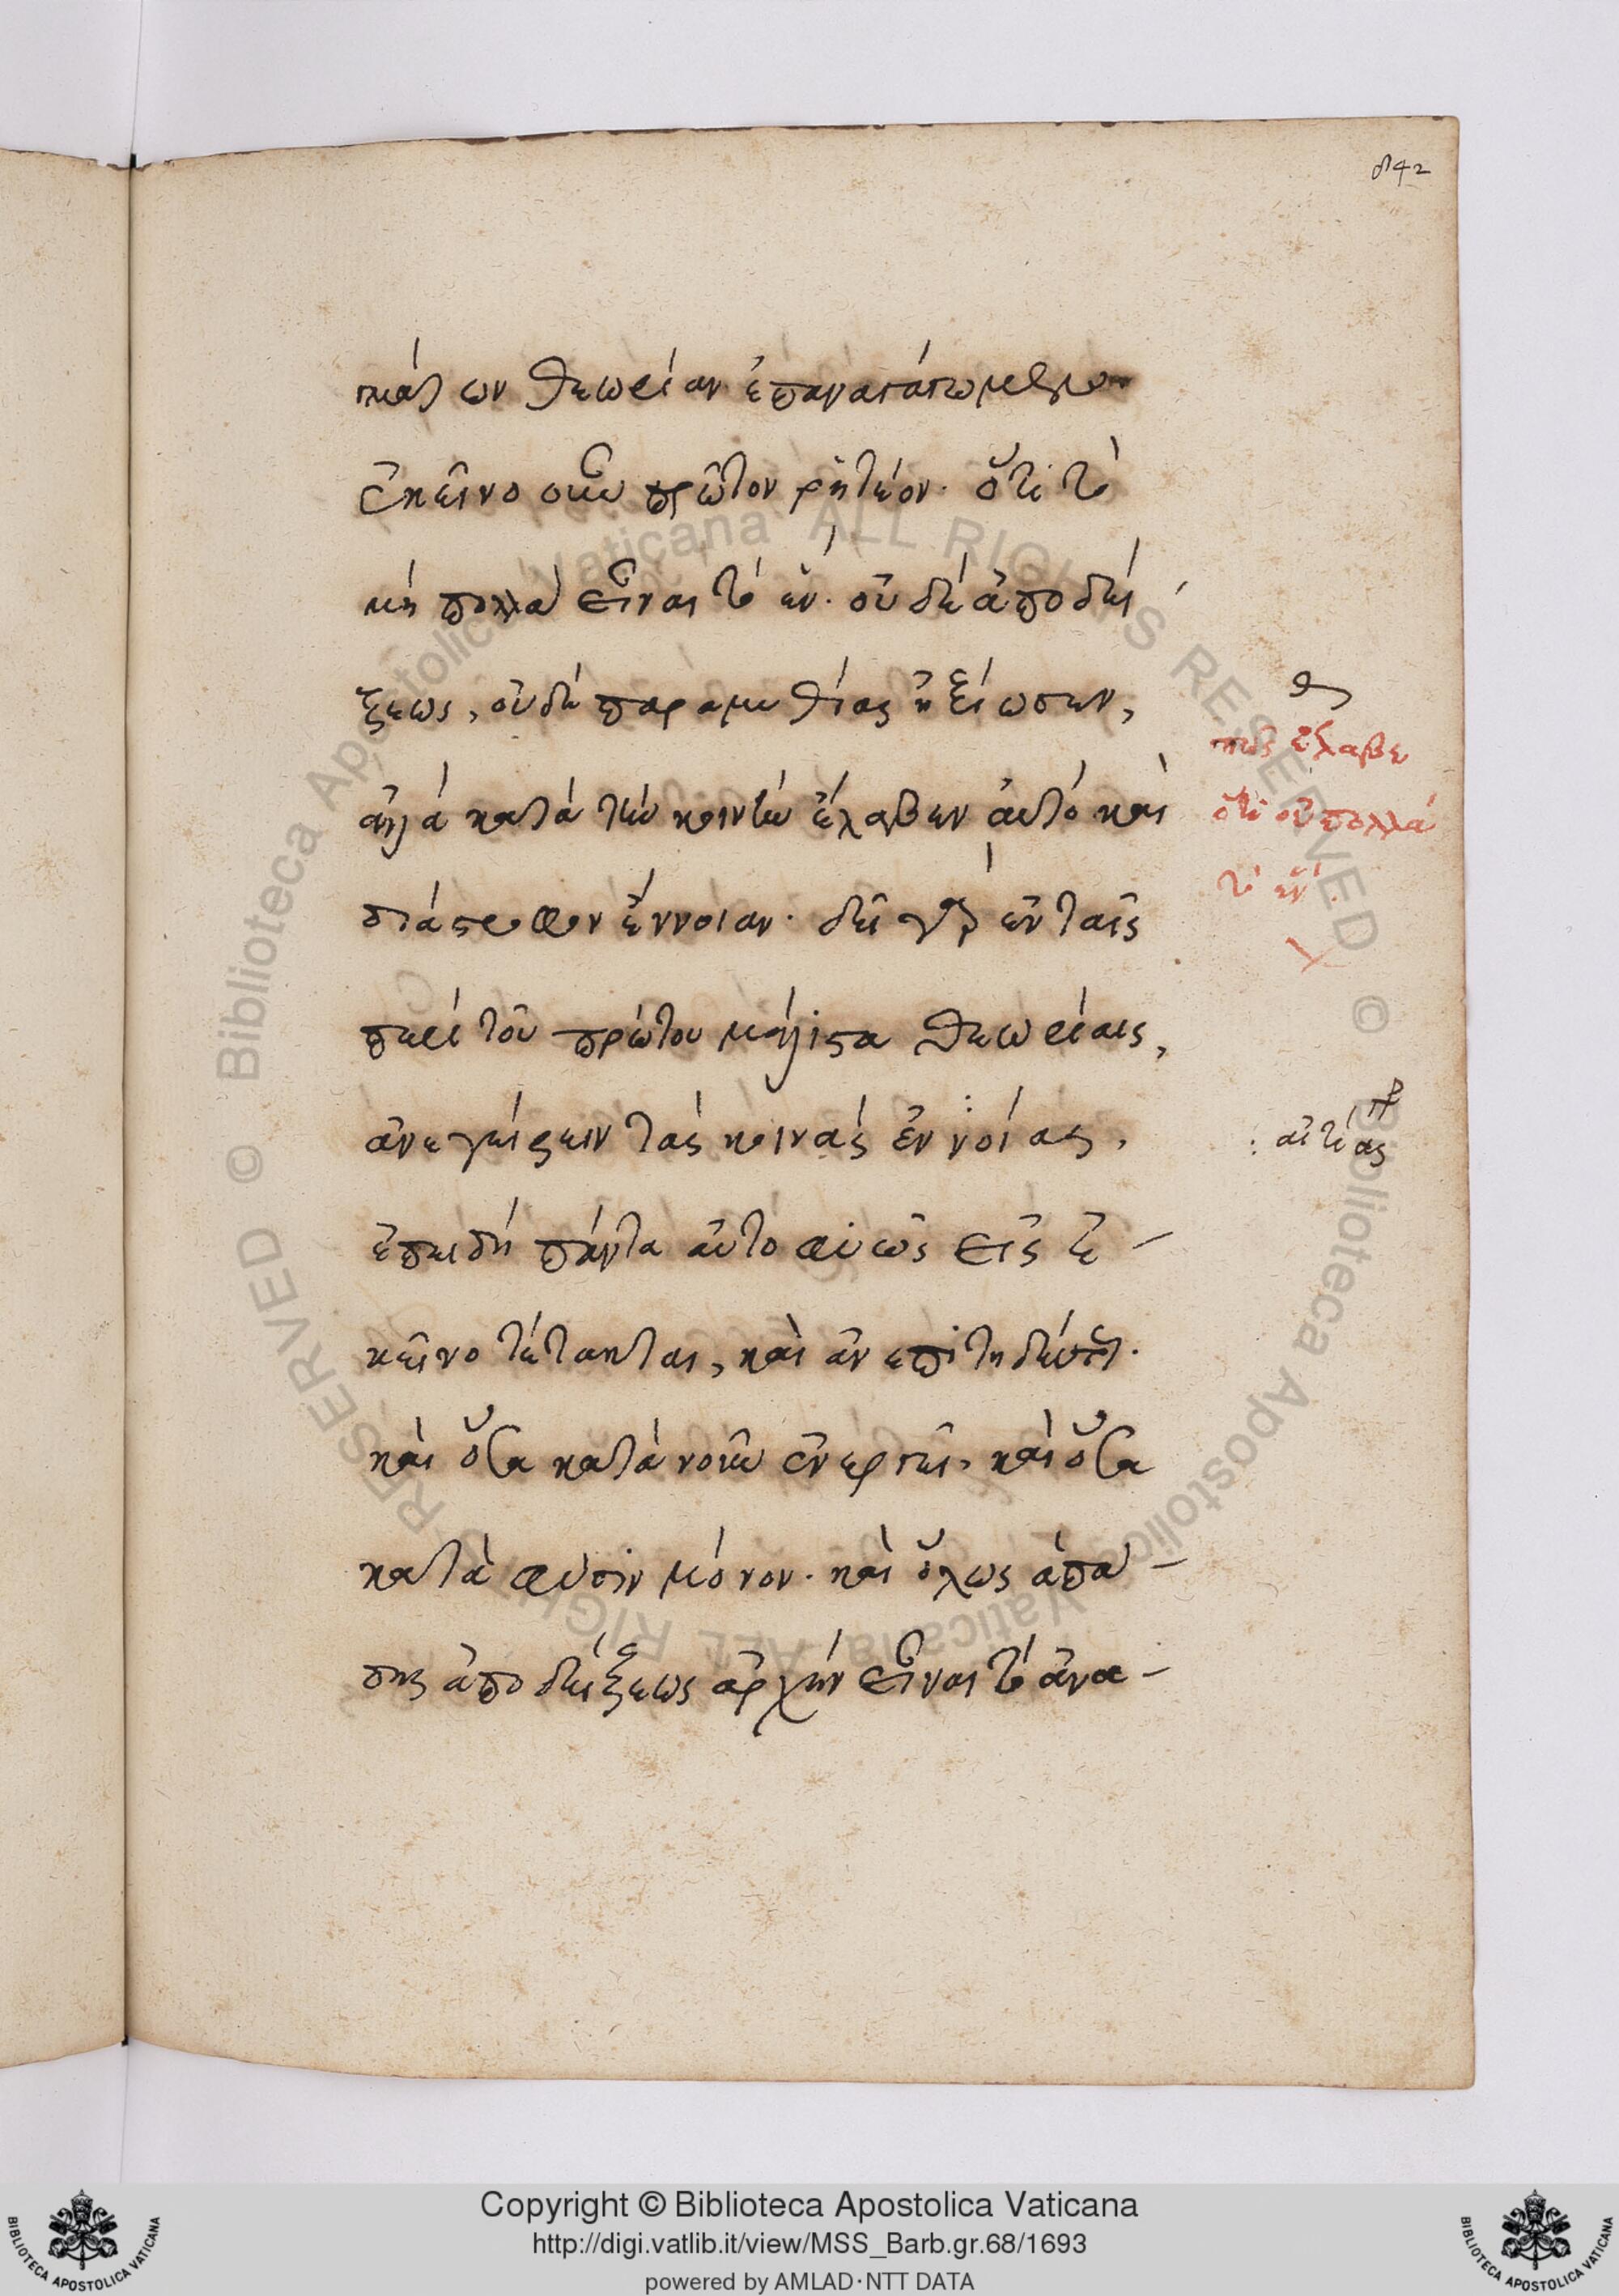 842
γμάτων θεωρίαν ἐπαναπάσωμεν
ἐκεῖνο οὖν πρῶτον ῥητέον· ὅτι τὸ
μὴ πολλὰ εἶναι τὸ ἕν· οὐδὲ ἀποδεί
ξεως, οὐδὲ παραμυθίας ἠξίωσεν,
ἀλλὰ κατὰ τὴν κοινὴν ἔλαβεν αὐτὸ καὶ
ἀδιάστροφον ἔννοιαν· δεῖ γὰρ ἐν ταῖς
περὶ τοῦ πρώτου μάλιστα θεωρίαις,
ἀνεγείρειν τὰς κοινὰς ἐννοίας,
ἐπειδὴ πάντα αὐτοφυῶς εἰς ἐ-
κεῖνο τέτακται, καὶ ἀνεπιτηδεύτως·
καὶ ὅσα κατὰ νοῦν ἐνεργεῖ, καὶ ὅσα
κατὰ φύσιν μόνον· καὶ ὅλως ἁπά-
σης ἀποδείξεως ἀρχὴν εἶναι τὸ ἀνα-
πῶς ἔλαβε
ὅτι οὐ πολλὰ
τὸ ἕν
: αἰτίας
Copyright © Biblioteca Apostolica Vaticana
http://digi.vatlib.it/view/MSS_Barb.gr.68/1693
powered by AMLAD·NTT DATA
BIBLIOTECA APOSTOLICA VATICANA
BIBLIOTECA APOSTOLICA VATICANA
© Biblioteca Apostolica Vaticana ALL RIGHTS RESERVED © Biblioteca Apostolica Vaticana ALL RIGHTS RESERVED